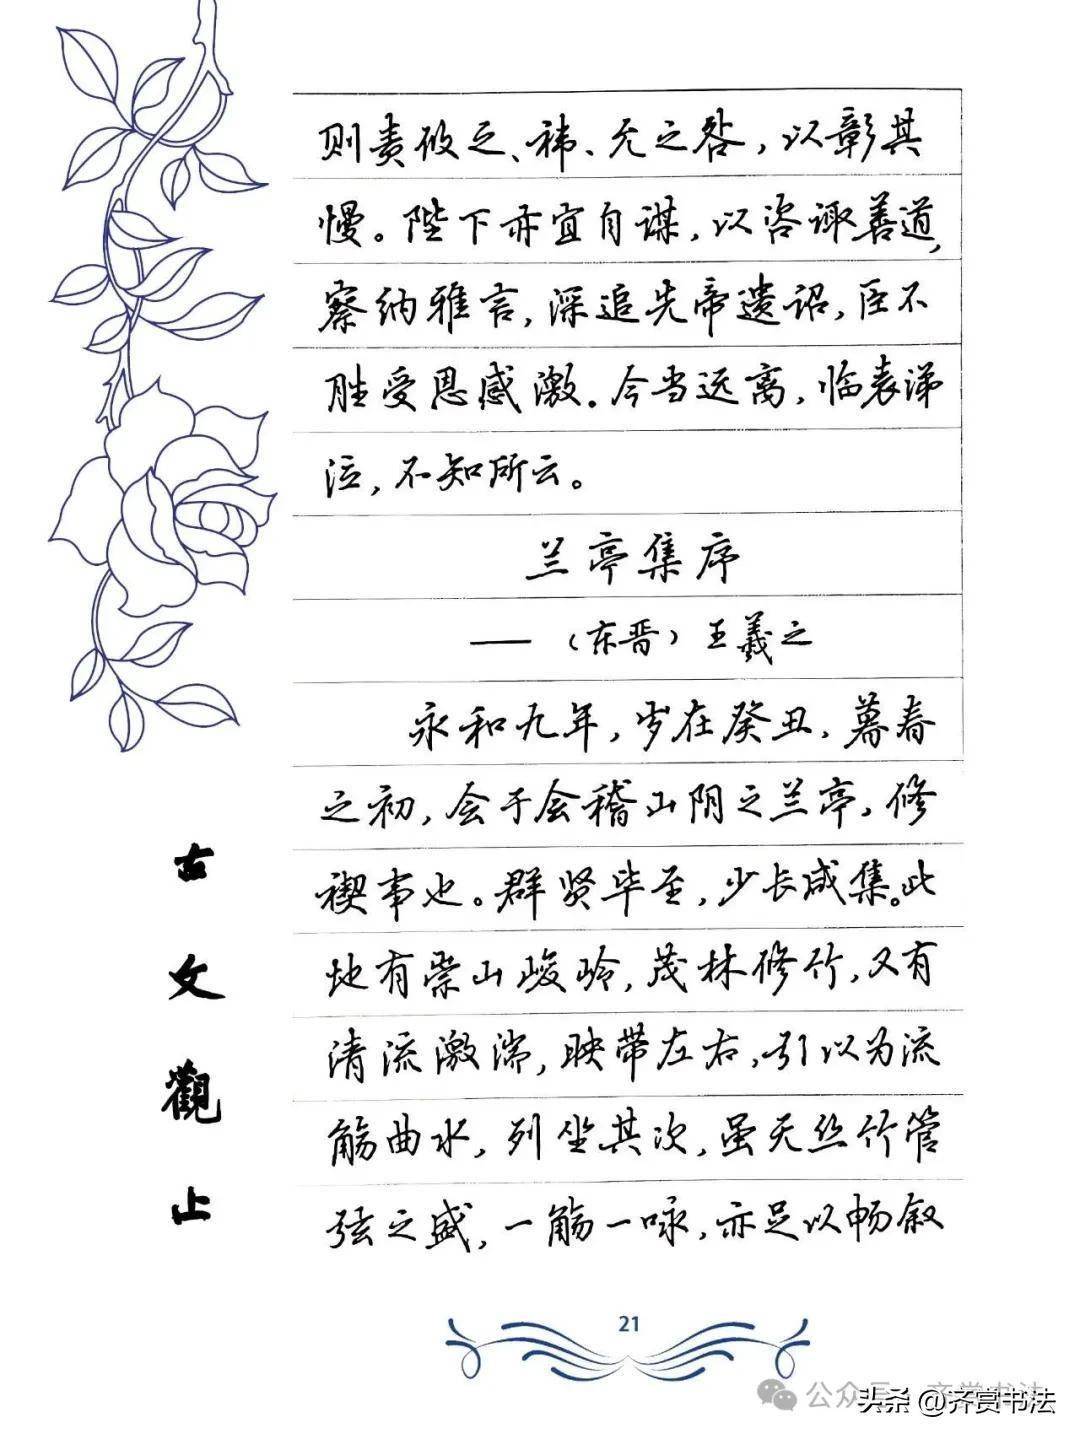 则责攸之、祎、允之咎，以彰其
慢。陛下亦宜自谋，以咨诹善道，
察纳雅言，深追先帝遗诏，臣不
胜受恩感激。今当远离，临表涕
泣，不知所云。
兰亭集序
——（东晋）王羲之
永和九年，岁在癸丑，暮春
之初，会于会稽山阴之兰亭，修
禊事也。群贤毕至，少长咸集。此
地有崇山峻岭，茂林修竹，又有
清流激湍，映带左右，引以为流
觞曲水，列坐其次，虽无丝竹管
弦之盛，一觞一咏，亦足以畅叙
古文觀止
21
公众号 · 齐赏书法
头条 @齐赏书法